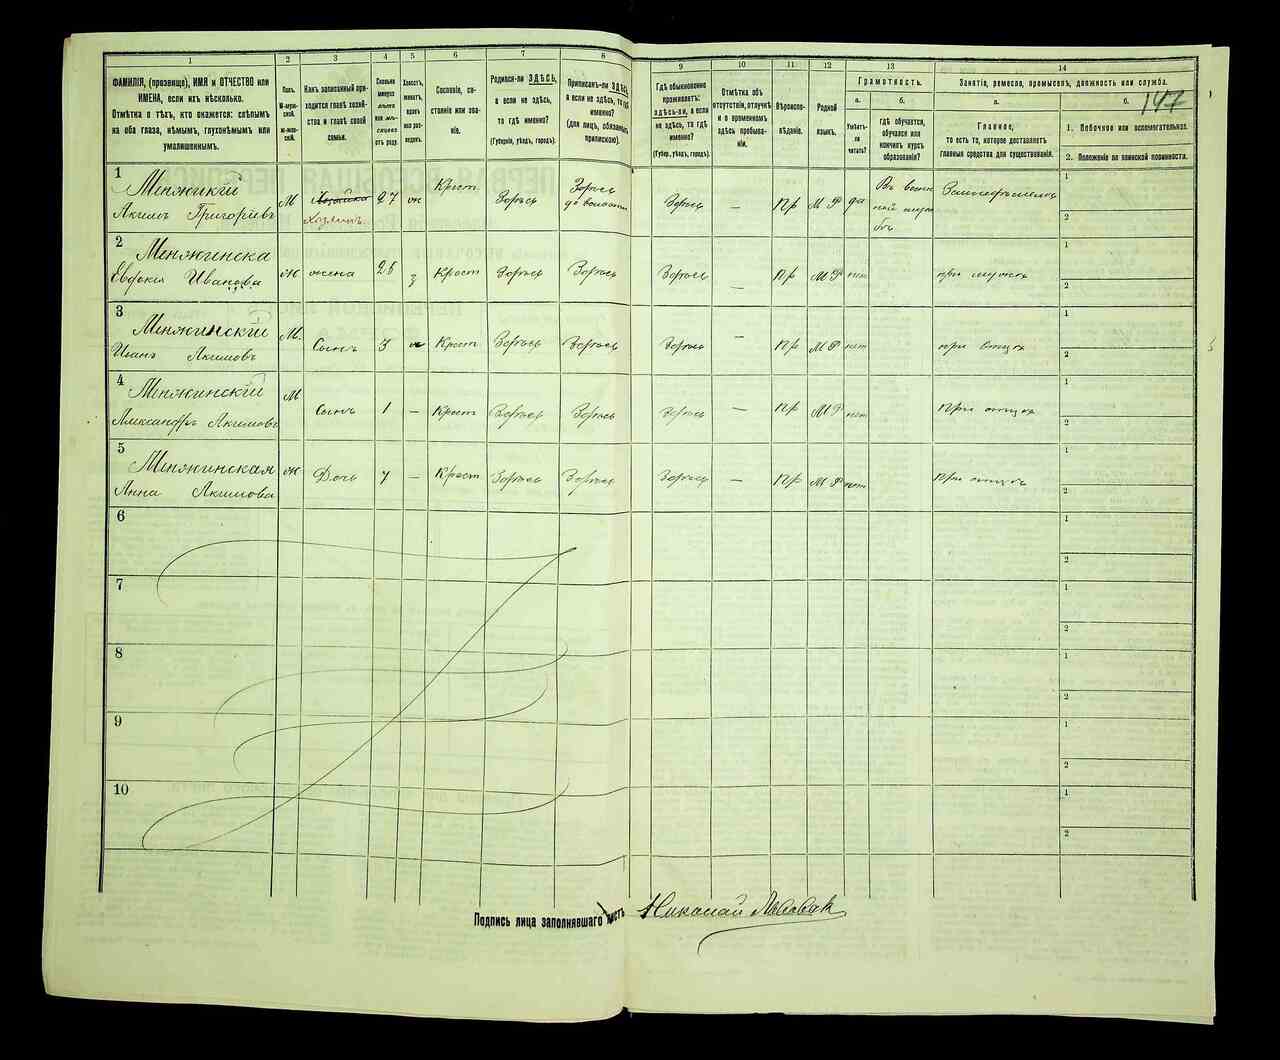 1 2 3 4 5 6 7 8 9 10 11 12 13 14
147
ФАМИЛІЯ, (прозвище), ИМЯ и ОТЧЕСТВО или
ИМЕНА, если ихъ нѣсколько.
Отмѣтка о тѣхъ, кто окажется: слѣпымъ
на оба глаза, нѣмымъ, глухонѣмымъ или
умалишеннымъ.
Полъ.
М-муж-
ской.
Ж-жен-
скій.
Какъ записанный при-
ходится главѣ хозяй-
ства и главѣ своей
семьи.
Сколько
минуло
лѣтъ
или мѣ-
сяцевъ
отъ роду.
Холостъ,
женатъ,
вдовъ
или раз-
веденъ.
Сословіе, со-
стояніе или зва-
ніе.
Родился-ли ЗДѢСЬ,
а если не здѣсь,
то гдѣ именно?
(Губернія, уѣздъ, городъ).
Приписанъ-ли ЗДѢСЬ,
а если не здѣсь, то гдѣ
именно?
(для лицъ, обязанныхъ
припискою).
Гдѣ обыкновенно
проживаетъ:
здѣсь-ли, а если
не здѣсь, то гдѣ
именно?
(Губер., уѣздъ, городъ).
Отмѣтка объ
отсутствіи, отлучкѣ
и о временномъ
здѣсь пребыва-
ніи.
Вѣроиспо-
вѣданіе.
Родной
языкъ.
Грамотность.
а.
Умѣетъ-
ли
читать?
б.
гдѣ обучается,
обучался или
кончилъ курсъ
образованія?
Занятіе, ремесло, промыселъ, должность или служба.
а.
Главное,
то есть то, которое доставляетъ
главныя средства для существованія.
б.
1. Побочное или вспомогательное.
2. Положеніе по воинской повинности.
1
Менжинскій М Хозяинъ 27 ж Крест Здѣсь Здѣсь Здѣсь — Пр М Р да Въ воен
Акимъ Григорьевъ
2
Менжинска ж жена 25 з Крест Здѣсь Здѣсь Здѣсь — Пр М Р нет при мужѣ
Евдокия Иванова
3
Менжинскій М. Сынъ 3 Крест Здѣсь Здѣсь Здѣсь — Пр М Р нет при отцѣ
Иванъ Акимовъ
4
Менжинскій М Сынъ 1 — Крест Здѣсь Здѣсь Здѣсь — Пр М Р нет при отцѣ
Александръ Акимовъ
5
Менжинская ж Дочь 7 — Крест Здѣсь Здѣсь Здѣсь — Пр М Р нет при отцѣ
Анна Акимова
6
7
8
9
10
1
2
1
2
1
2
1
2
1
2
1
2
1
2
1
2
1
2
1
2
Подпись лица заполнявшаго листъ Николай